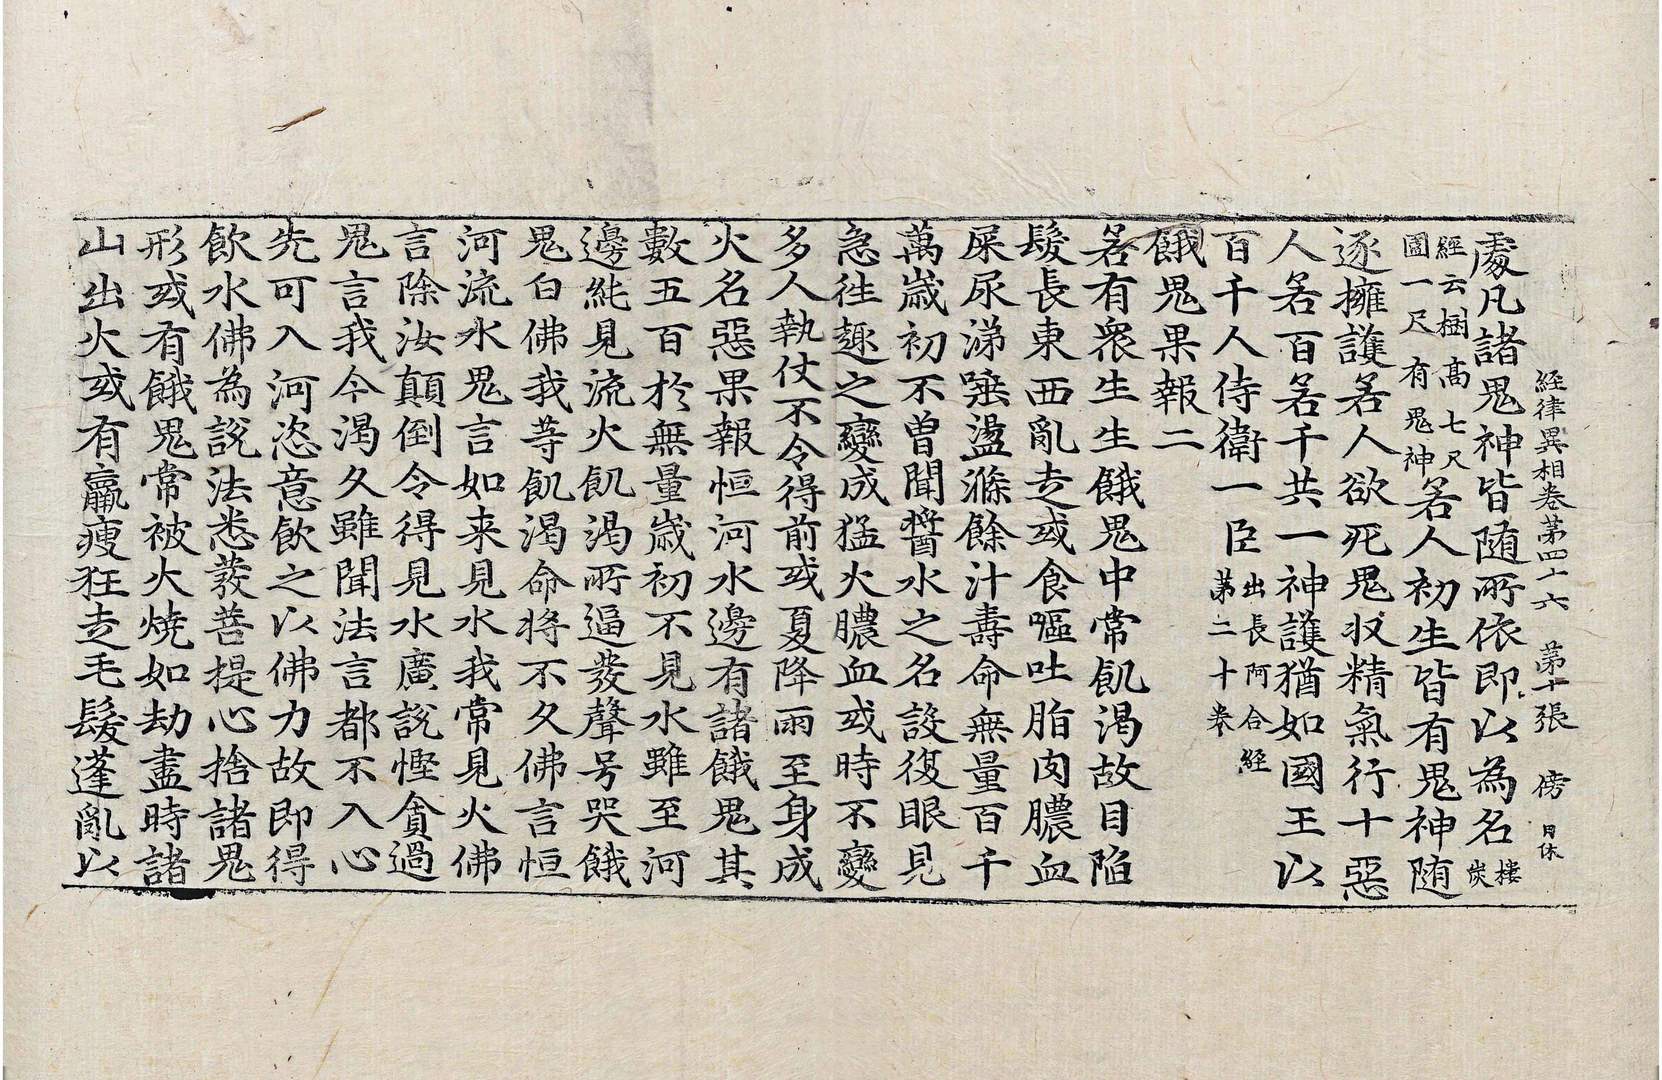 経律異相卷第四十六 第十張 傍 日休
處凡諸鬼神皆随所依即以為名樓炭
經云樹高七尺圍一尺有鬼神若人初生皆有鬼神随
逐擁護若人欲死鬼収精氣行十惡
人若百若千共一神護猶如國王以
百千人侍衛一臣出長阿含經第二十卷
餓鬼果報二
若有衆生生餓鬼中常飢渴故目陷
髮長東西亂走或食嘔吐脂肉膿血
屎尿涕唾盪滌餘汁壽命無量百千
萬歲初不曾聞醬水之名設復眼見
急往趣之變成猛火膿血或時不變
多人執仗不令得前或夏降雨至身成
火名惡果報恒河水邊有諸餓鬼其
數五百於無量歲初不見水雖至河
邊純見流火飢渴所逼發聲号哭餓
鬼白佛我等飢渴命將不久佛言恒
河流水鬼言如来見水我常見火佛
言除汝顛倒令得見水廣說慳貪過
鬼言我今渴久雖聞法言都不入心
先可入河恣意飲之以佛力故即得
飲水佛為說法悉發菩提心捨諸鬼
形或有餓鬼常被火燒如劫盡時諸
山出火或有羸瘦狂走毛髮蓬亂以